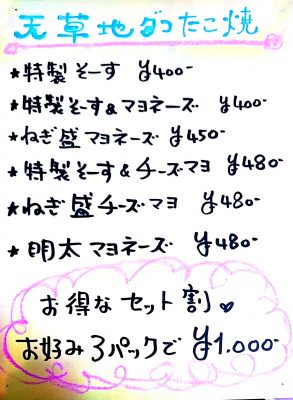 天草地ダコたこ焼
★特製そーす ¥400-
★特製そーす&マヨネーズ ¥400-
★ねぎ盛マヨネーズ ¥450-
★特製そーす&チーズマヨ ¥480-
★ねぎ盛チーズマヨ ¥480-
★明太マヨネーズ ¥480-
お得なセット割♥
お好み3パックで ¥1.000-